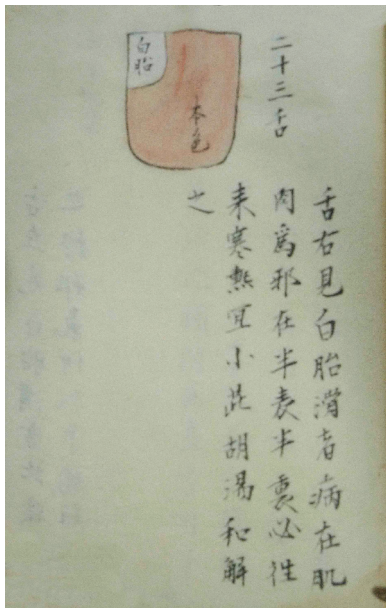 二十三舌
白胎
本色
舌右見白胎滑者病在肌
肉爲邪在半表半裏必徃
来寒熱宜小茈胡湯和解
之